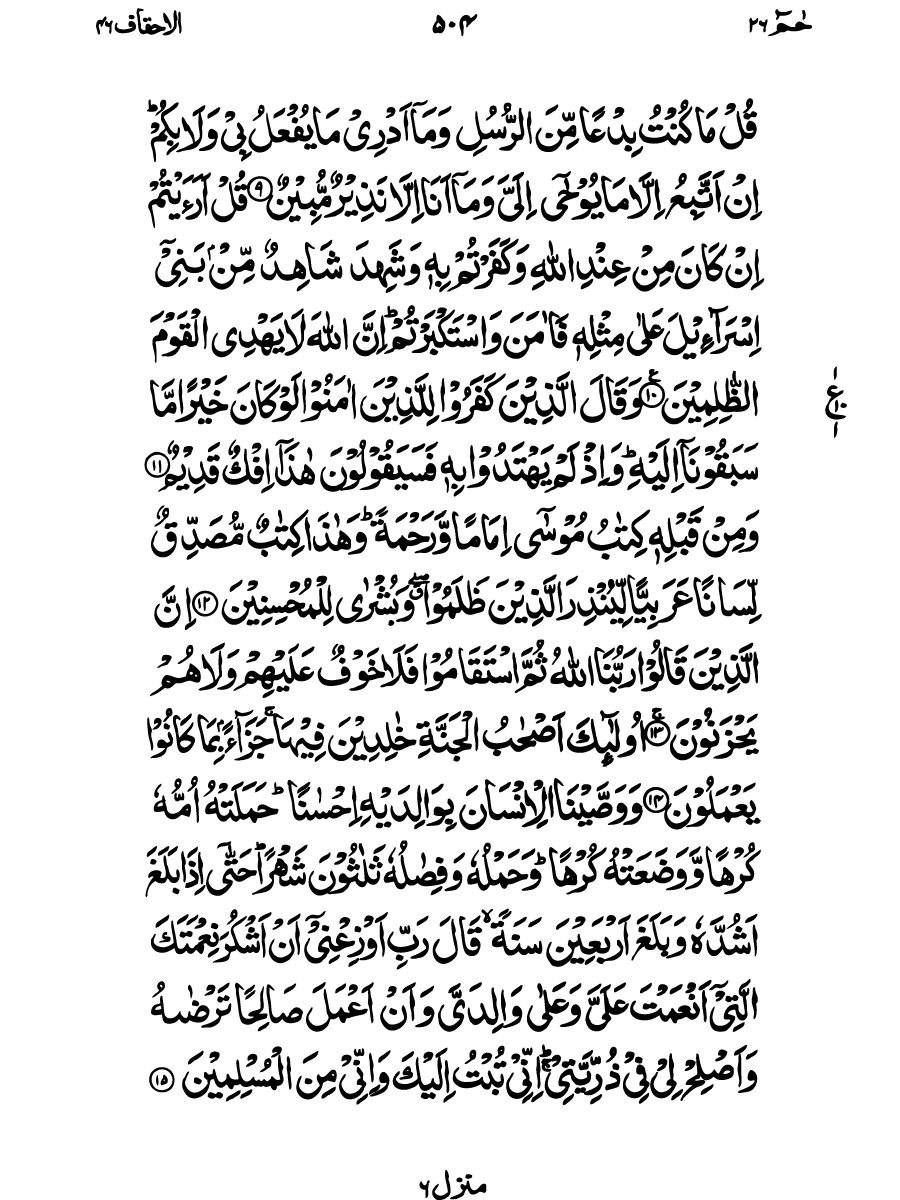 حٰمٓ ۲۶
۵۰۴
الاحقاف ۴۶
قُلْ مَا كُنْتُ بِدْعًا مِّنَ الرُّسُلِ وَمَاۤ اَدْرِیْ مَا یُفْعَلُ بِیْ وَلَا بِكُمْؕ
اِنْ اَتَّبِعُ اِلَّا مَا یُوْحٰۤی اِلَیَّ وَمَاۤ اَنَا اِلَّا نَذِیْرٌ مُّبِیْنٌ ﴿۹﴾ قُلْ اَرَءَیْتُمْ
اِنْ كَانَ مِنْ عِنْدِ اللّٰهِ وَكَفَرْتُمْ بِهٖ وَشَهِدَ شَاهِدٌ مِّنْۢ بَنِیْۤ
اِسْرَآءِیْلَ عَلٰی مِثْلِهٖ فَاٰمَنَ وَاسْتَكْبَرْتُمْؕ اِنَّ اللّٰهَ لَا یَهْدِی الْقَوْمَ
الظّٰلِمِیْنَ ﴿۱۰﴾ؒ وَقَالَ الَّذِیْنَ كَفَرُوْا لِلَّذِیْنَ اٰمَنُوْا لَوْ كَانَ خَیْرًا مَّا
سَبَقُوْنَاۤ اِلَیْهِؕ وَاِذْ لَمْ یَهْتَدُوْا بِهٖ فَسَیَقُوْلُوْنَ هٰذَاۤ اِفْكٌ قَدِیْمٌ ﴿۱۱﴾
وَمِنْ قَبْلِهٖ كِتٰبُ مُوْسٰۤی اِمَامًا وَّرَحْمَةًؕ وَهٰذَا كِتٰبٌ مُّصَدِّقٌ
لِّسَانًا عَرَبِیًّا لِّیُنْذِرَ الَّذِیْنَ ظَلَمُوْاۖۗ وَبُشْرٰی لِلْمُحْسِنِیْنَ ﴿۱۲﴾ اِنَّ
الَّذِیْنَ قَالُوْا رَبُّنَا اللّٰهُ ثُمَّ اسْتَقَامُوْا فَلَا خَوْفٌ عَلَیْهِمْ وَلَا هُمْ
یَحْزَنُوْنَ ﴿۱۳﴾ۚ اُولٰٓىِٕكَ اَصْحٰبُ الْجَنَّةِ خٰلِدِیْنَ فِیْهَاۚ جَزَآءًۢ بِمَا كَانُوْا
یَعْمَلُوْنَ ﴿۱۴﴾ وَوَصَّیْنَا الْاِنْسَانَ بِوَالِدَیْهِ اِحْسٰنًاؕ حَمَلَتْهُ اُمُّهٗ
كُرْهًا وَّوَضَعَتْهُ كُرْهًاؕ وَحَمْلُهٗ وَفِصٰلُهٗ ثَلٰثُوْنَ شَهْرًاؕ حَتّٰۤی اِذَا بَلَغَ
اَشُدَّهٗ وَبَلَغَ اَرْبَعِیْنَ سَنَةًۙ قَالَ رَبِّ اَوْزِعْنِیْۤ اَنْ اَشْكُرَ نِعْمَتَكَ
الَّتِیْۤ اَنْعَمْتَ عَلَیَّ وَعَلٰی وَالِدَیَّ وَاَنْ اَعْمَلَ صَالِحًا تَرْضٰىهُ
وَاَصْلِحْ لِیْ فِیْ ذُرِّیَّتِیْۚؕ اِنِّیْ تُبْتُ اِلَیْكَ وَاِنِّیْ مِنَ الْمُسْلِمِیْنَ ﴿۱۵﴾
منزل ۶